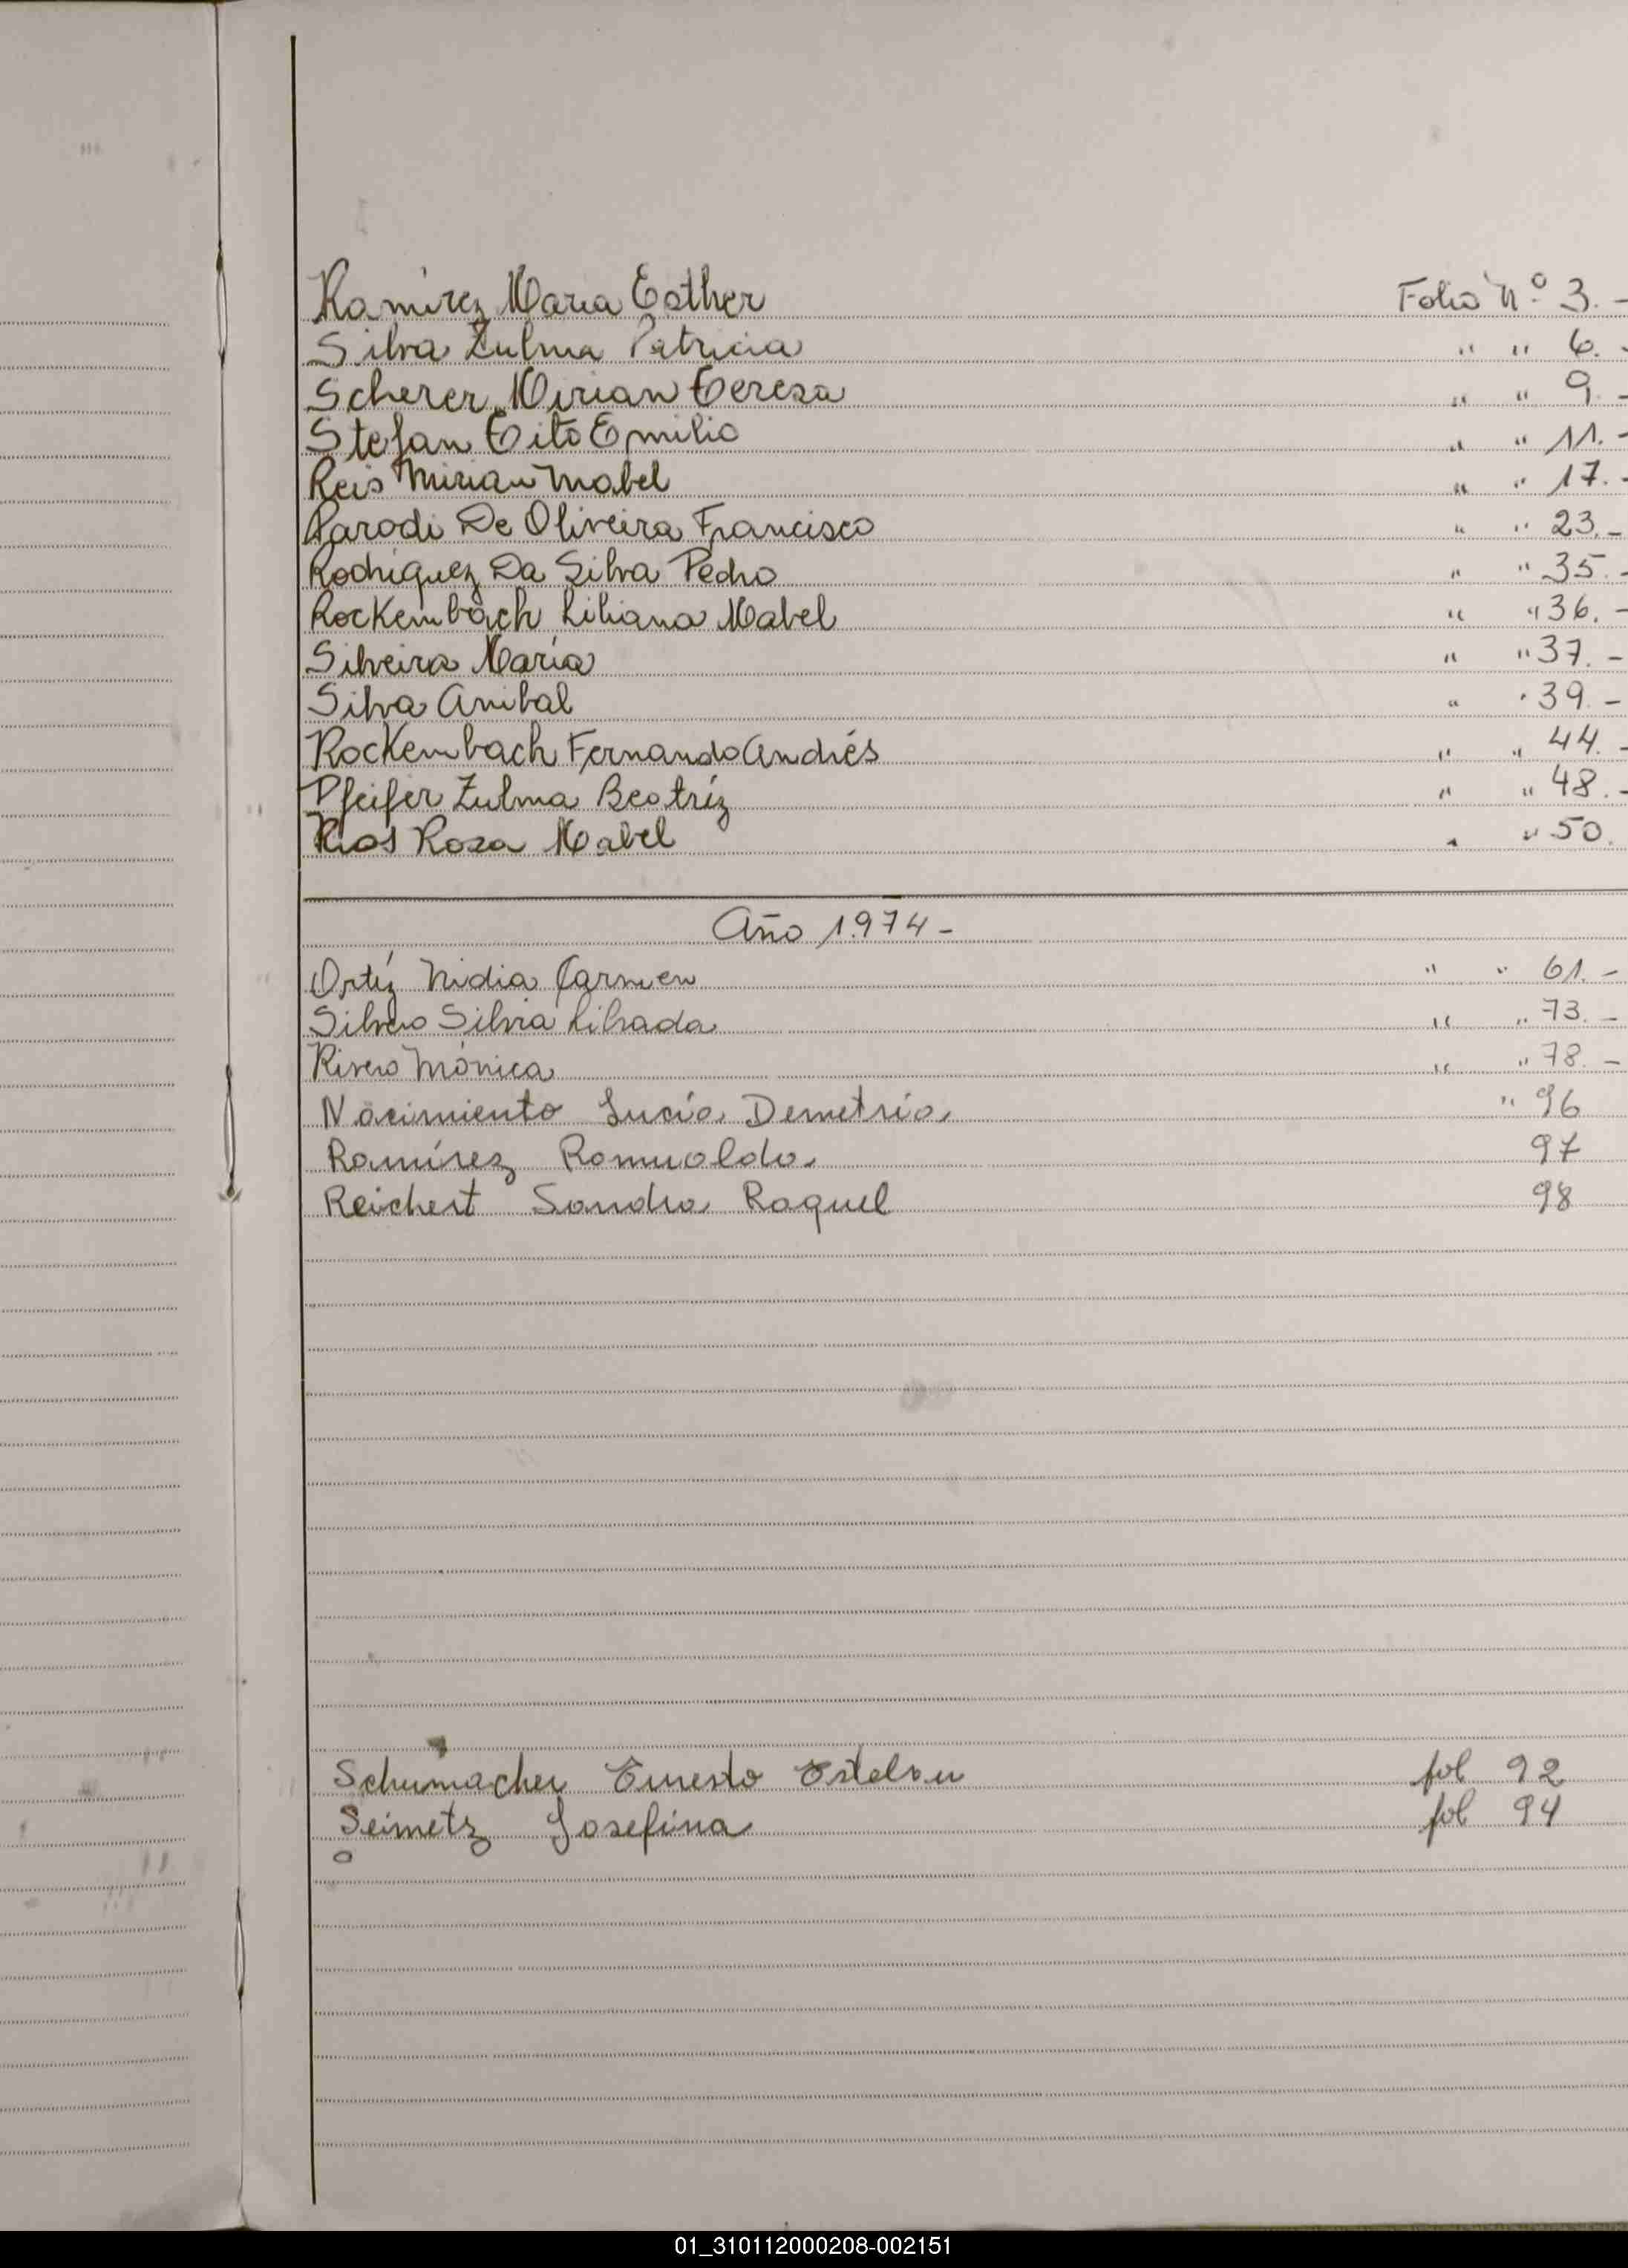 Ramírez Maria Esther Folio Nº 3.-
Silva Zulma Patricia " " 6.-
Scherer Mirian Teresa " " 9.-
Stefan Tito Emilio " " 11.-
Reis Mirian Mabel " " 17.-
Parodi De Oliveira Francisco " " 23.-
Rodriguez Da Silva Pedro " " 35.-
Rockembach Liliana Mabel " " 36.-
Silveira María " " 37.-
Silva Anibal " " 39.-
Rockembach Fernando Andrés " " 44.-
Pfeifer Zulma Beatríz " " 48.-
Rios Rosa Mabel " " 50.
Año 1.974-
Ortíz Nidia Carmen " " 61.-
Silvero Silvia Librada " " 73.-
Rivero Mónica " " 78.-
Nacimiento Lucía Demetria " 96
Ramírez Romualdo 97
Reichert Sandra Raquel 98
Schumacher Ernesto fol 92
Seimetz Josefina fol 94
01_310112000208-002151